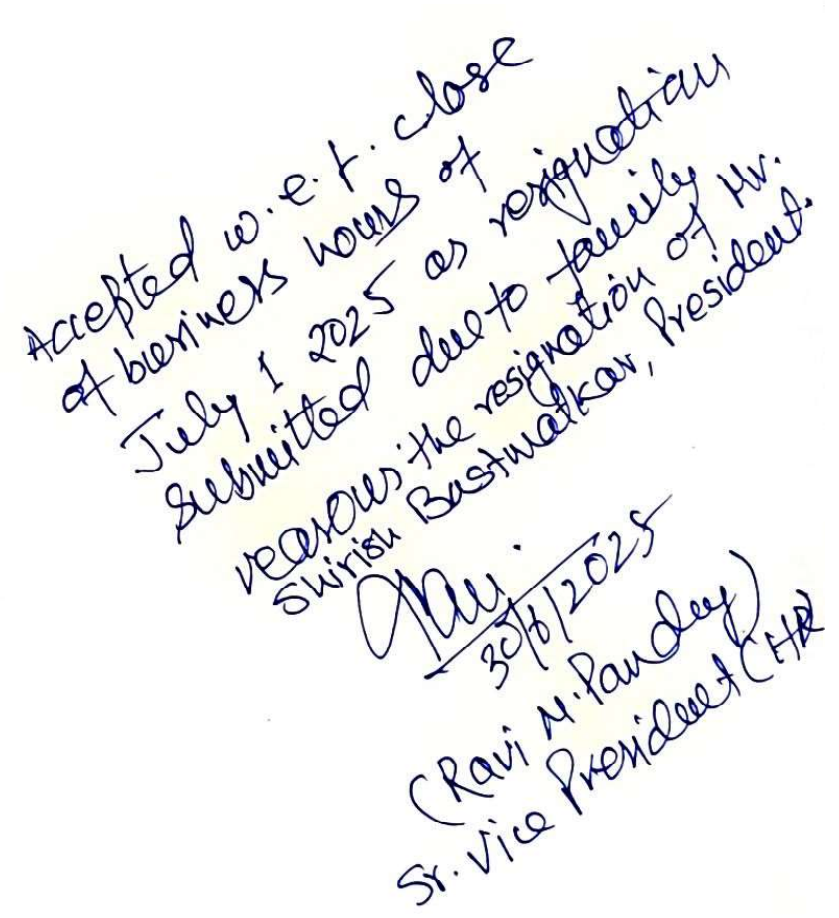 Accepted w.e.f. close
of business hours of
July 1 2025 as resignation
submitted due to family
reasons the resignation of Mr.
Shirish Bastwatkar, President.
30/6/2025
(Ravi M. Pandey)
Sr. Vice President (HR